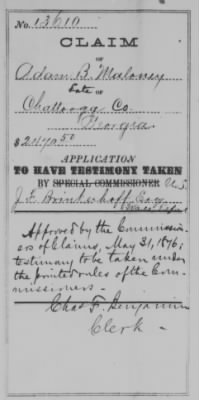 No. 13610
CLAIM
OF
Adam B. Maloney
late OF
Chattooga Co.
Georgia
$2470.50
APPLICATION
TO HAVE TESTIMONY TAKEN
BY SPECIAL COMMISSIONER U.S.
J. E. Brinkerhoff
Approved by the Commission-
ers of Claims, May 31, 1876;
testimony to be taken under
the printed rules of the Com-
missioners.
Chas. F. Benjamin
Clerk